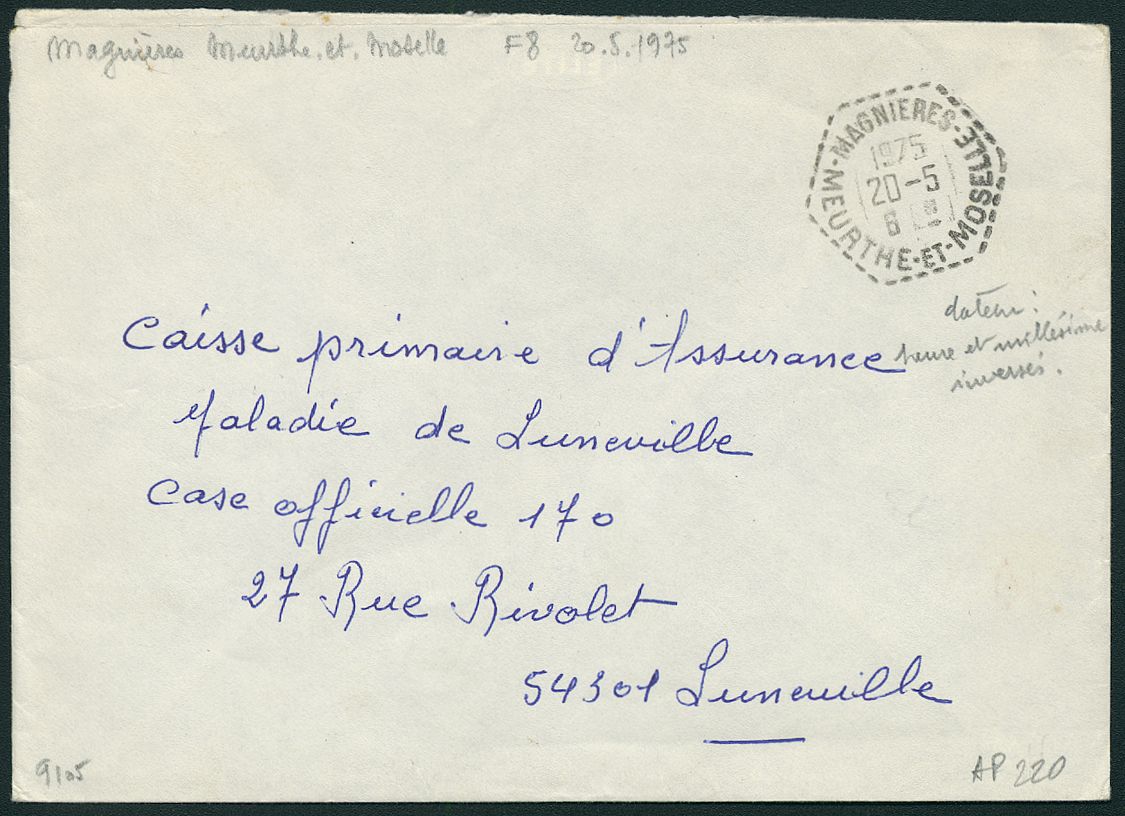 Magnières Meurthe.et.Moselle F8 20.5.1975
MAGNIERES-
MEURTHE-ET-MOSELLE
1975
20-5
8 H
dateur:
heure et millésime
inversés.
Caisse primaire d'Assurance
Maladie de Luneville
Case officielle 170
27 Rue Rivolet
54301 Luneville
9105
AP 220